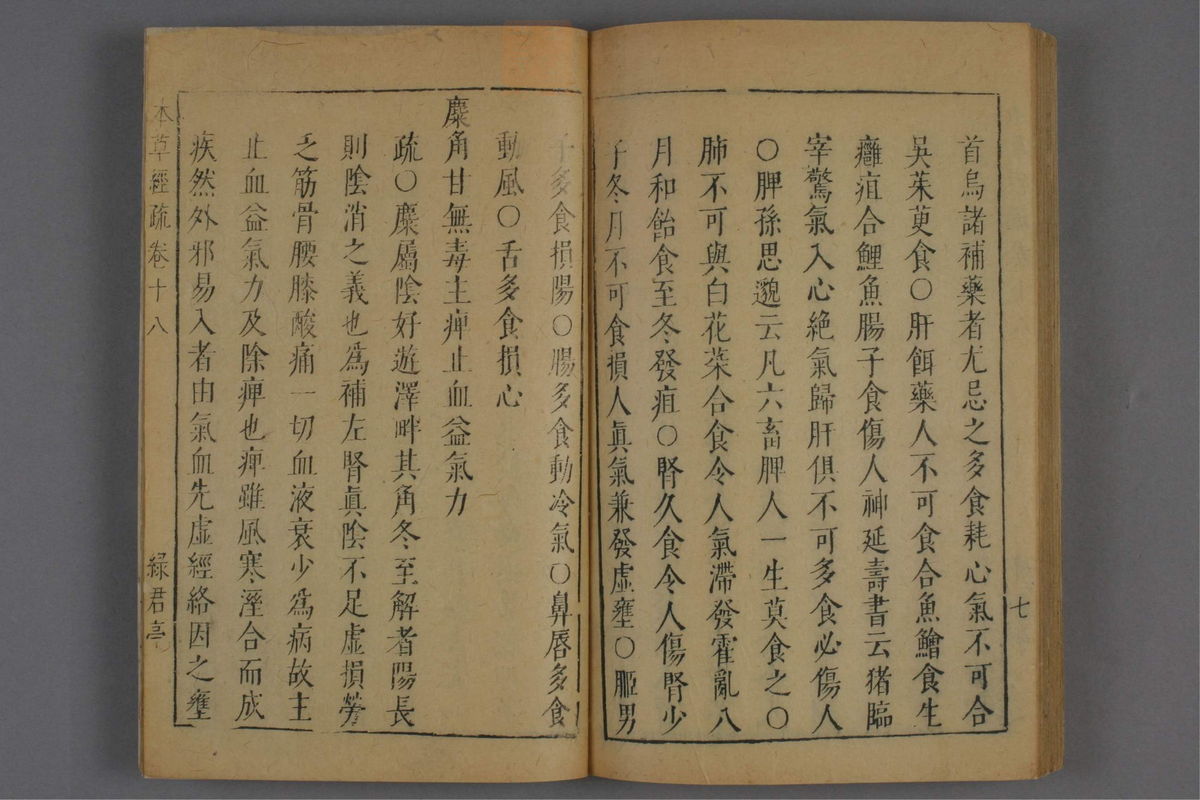 首烏諸補藥者尤忌之多食耗心氣不可合
吳茱萸食〇肝餌藥人不可食合魚鱠食生
癰疽合鯉魚腸子食傷人神延壽書云猪臨
宰驚氣入心絶氣歸肝俱不可多食必傷人
〇脾孫思邈云凡六畜脾人一生莫食之〇
肺不可與白花菜合食令人氣滯發霍亂八
月和飴食至冬發疽〇腎久食令人傷腎少
子冬月不可食損人眞氣兼發虛壅〇脏男
七
子多食損陽〇腸多食動冷氣〇鼻唇多食
動風〇舌多食損心
麋角甘無毒主痺止血益氣力
疏〇麋屬陰好遊澤畔其角冬至解者陽長
則陰消之義也爲補左腎眞陰不足虛損勞
乏筋骨腰膝酸痛一切血液衰少爲病故主
止血益氣力及除痺也痺雖風寒溼合而成
疾然外邪易入者由氣血先虛經絡因之壅
本草經疏卷十八
綠君亭